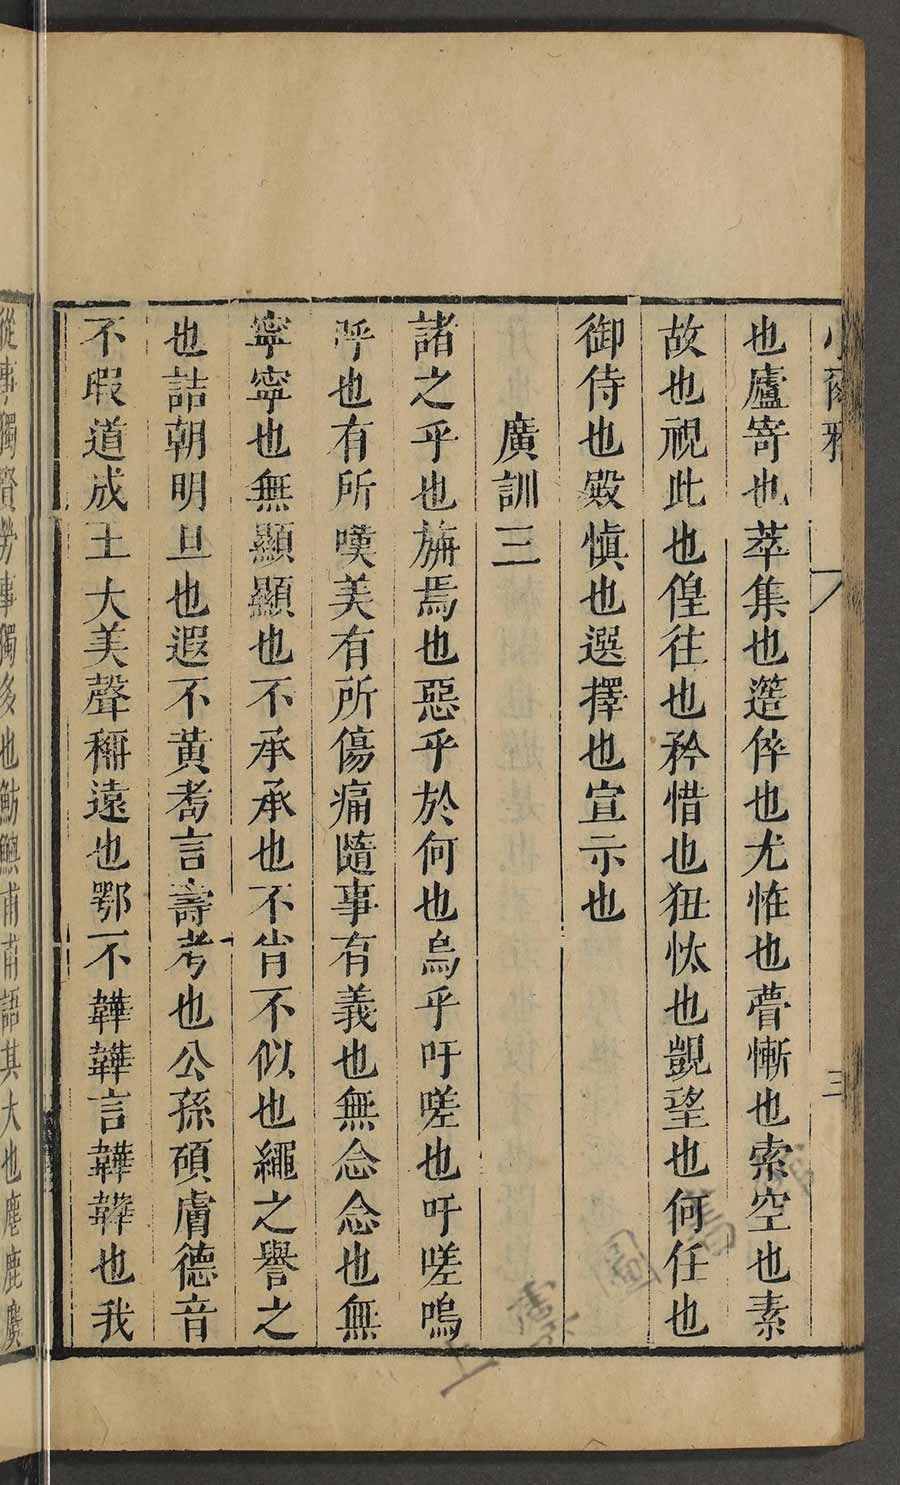 小爾雅 三
也廬寄也萃集也簉倅也尤惟也瞢慚也索空也素
故也視此也偟往也矜惜也狃忕也覬望也何任也
御侍也殿愼也選擇也宣示也
廣訓三
諸之乎也旃焉也惡乎於何也烏乎吁嗟也吁嗟嗚
呼也有所嘆美有所傷痛隨事有義也無念念也無
寧寧也無顯顯也不承承也不肖不似也繩之譽之
也詰朝明旦也遐不黃耇言壽考也公孫碩膚德音
不瑕道成王大美聲稱遠也鄂不韡韡言韡韡也我
從事獨賢勞事獨多也魴鱮甫甫語其大也麀鹿麌